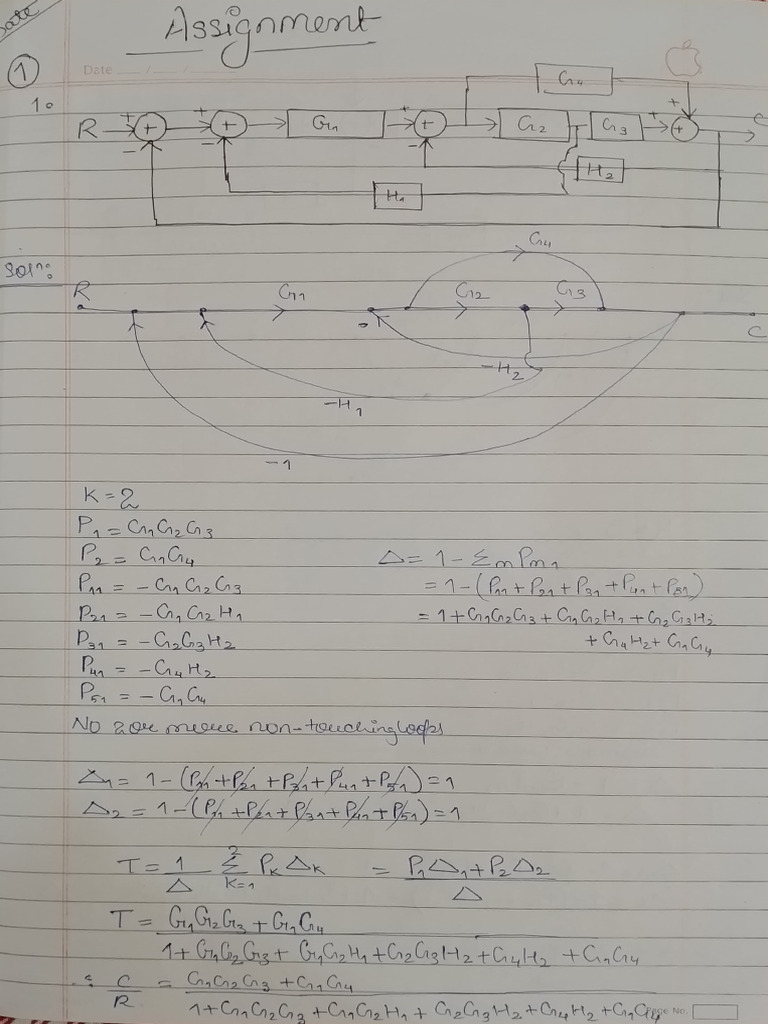 Date
Assignment
1
Date / /
1.
G4
R + + - + + - G1 + + - G2 G3 + + + C
H2
H1
Soln:
R G1 G2 G3 G4 C
-H2
-H1
-1
K = 2
P1 = G1G2G3
P2 = G1G4
P11 = -G1G2G3
P21 = -G1G2H1
P31 = -G2G3H2
P41 = -G4H2
P51 = -G1G4
Δ = 1 - ΣmPm1
= 1 - (P11 + P21 + P31 + P41 + P51)
= 1 + G1G2G3 + G1G2H1 + G2G3H2
+ G4H2 + G1G4
No 2 or more non-touching loops
Δ1 = 1 - (P11 + P21 + P31 + P41 + P51) = 1
Δ2 = 1 - (P11 + P21 + P31 + P41 + P51) = 1
T = 1/Δ 2Σk=1 PkΔk = P1Δ1 + P2Δ2 / Δ
T = G1G2G3 + G1G4
1 + G1G2G3 + G1G2H1 + G2G3H2 + G4H2 + G1G4
∴ C/R = G1G2G3 + G1G4
1 + G1G2G3 + G1G2H1 + G2G3H2 + G4H2 + G1G4
Page No.